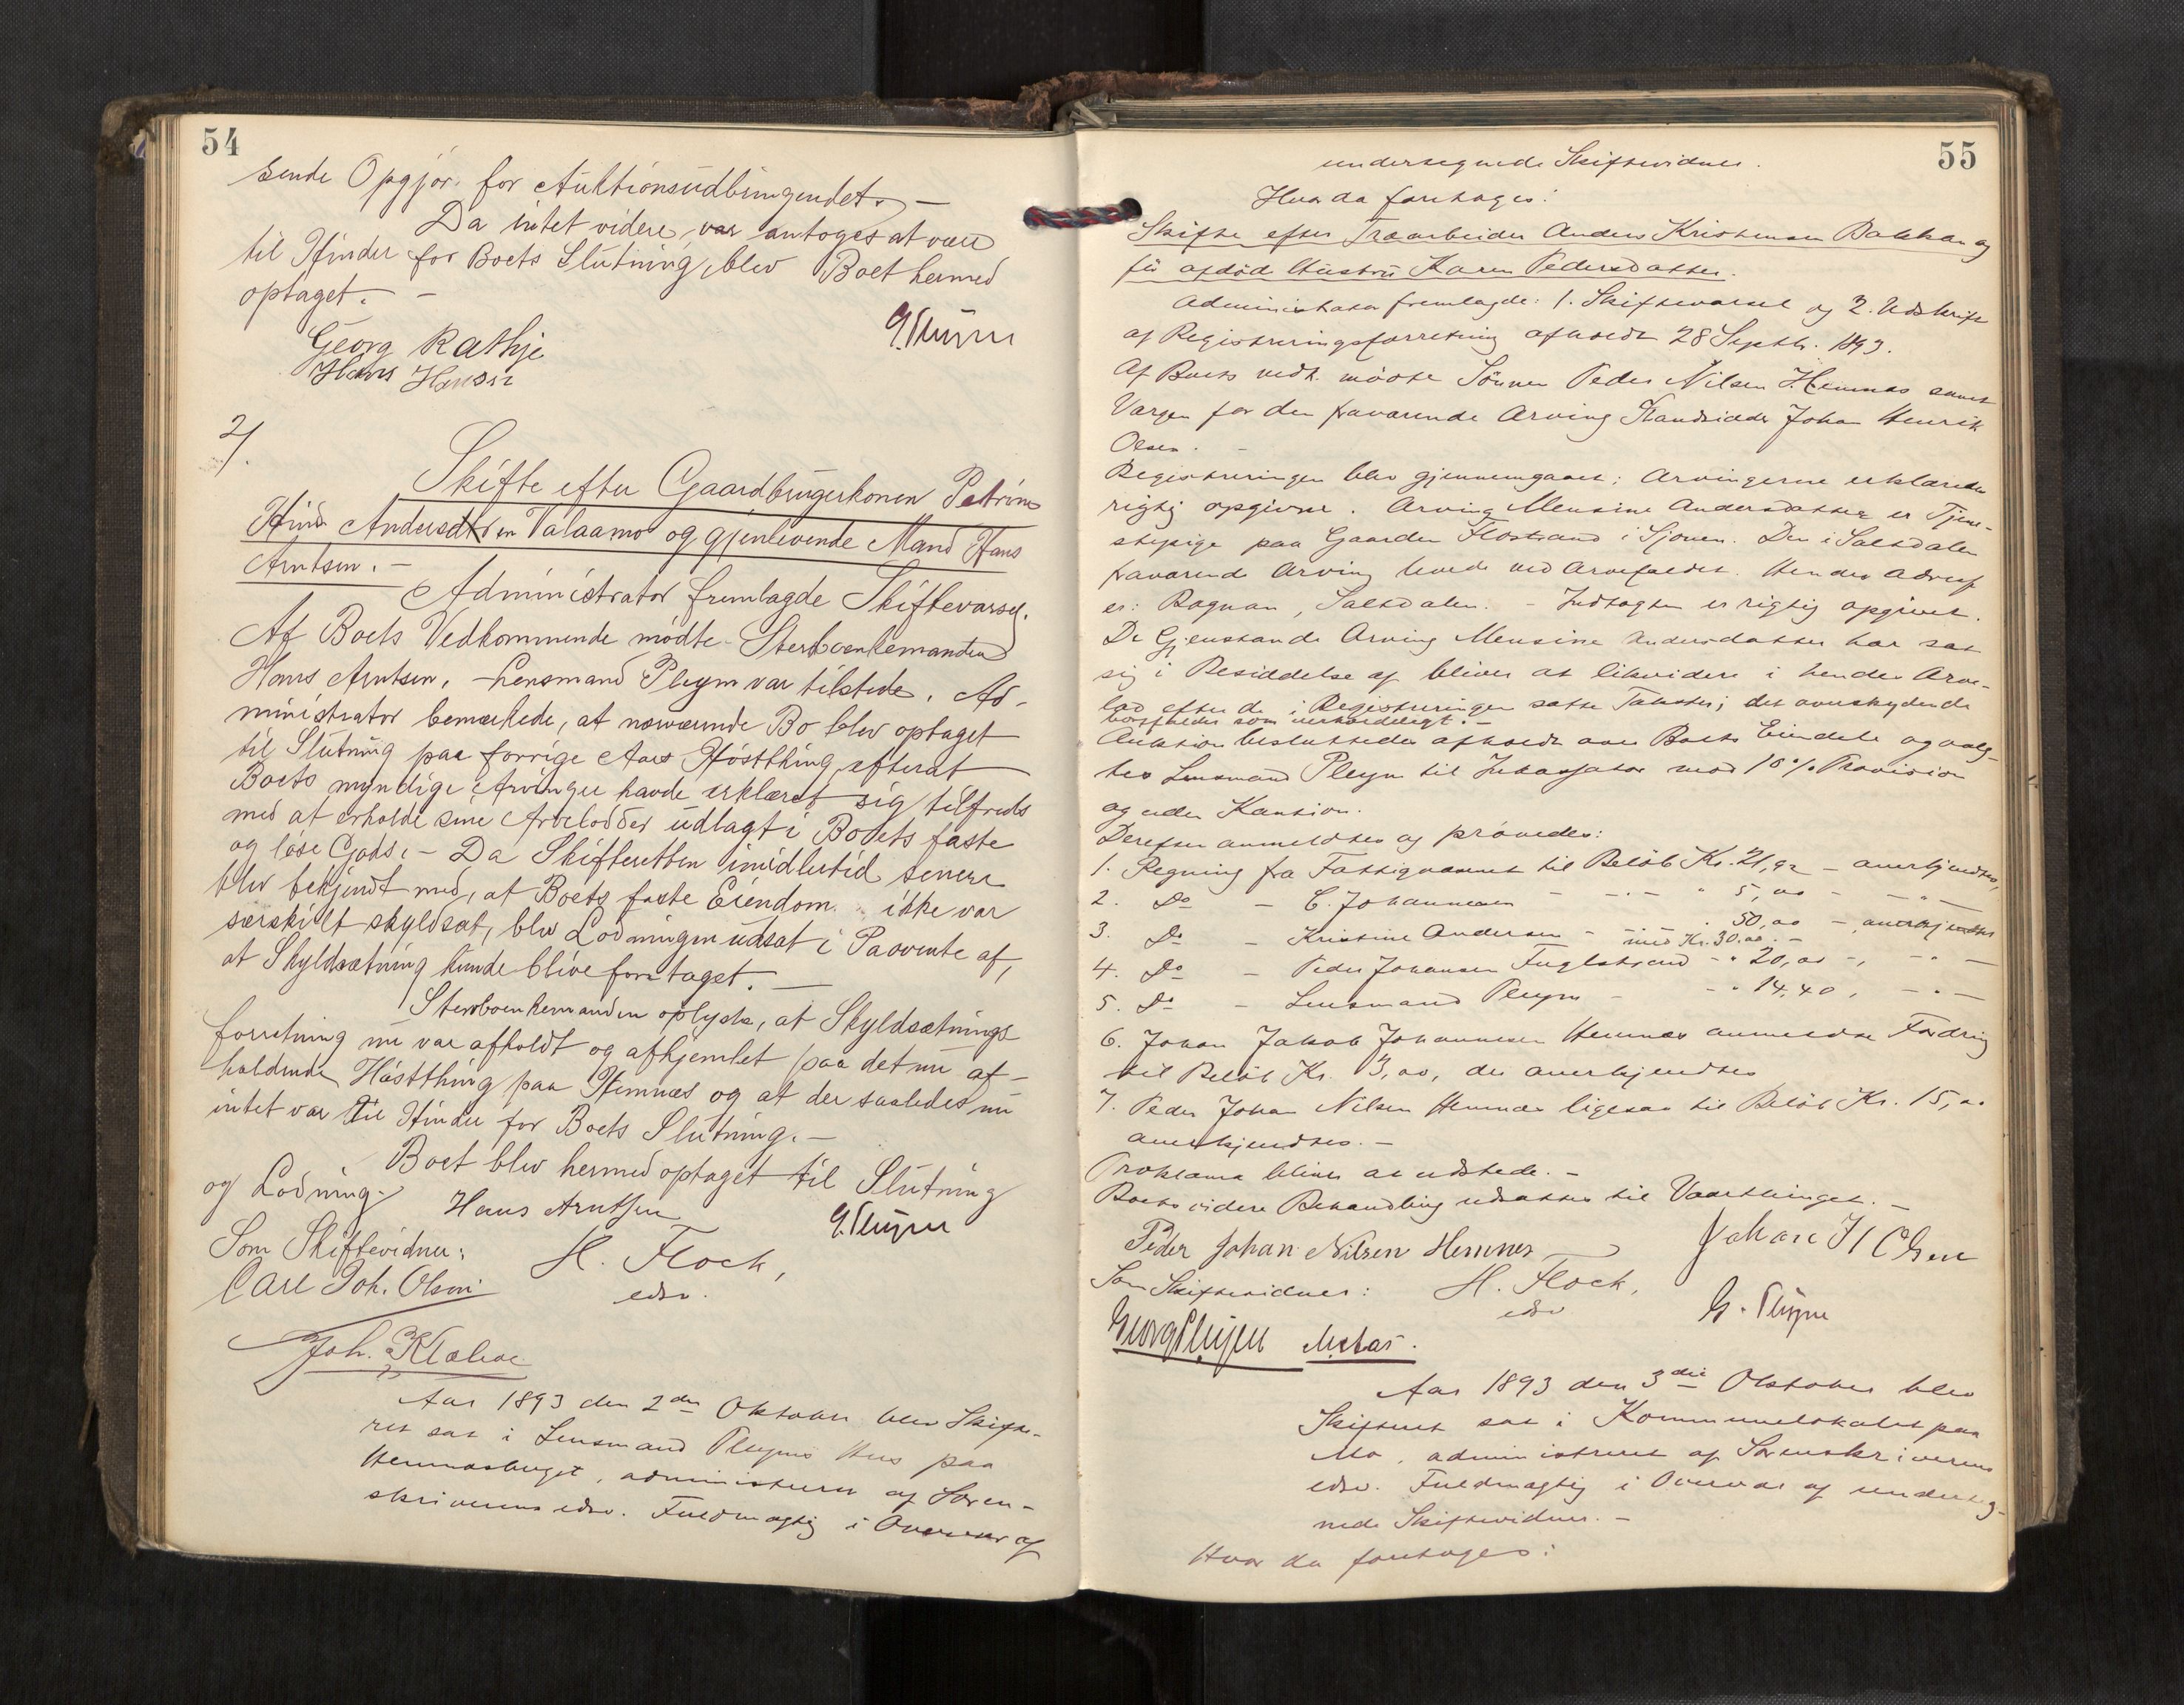 54
sende Opgjör for Auktionsudbringendet. —
Da intet videre var antoges at være
til Hinder for Boets Slutning, blev Boet hermed
optaget. —
G. Pleym
Georg Rathje
Hans Hansen
2/.
Skifte efter Gaardbrugerkonen Petrine
Andersdtr en Valaamo og gjenlevende Mand Hans
Arntsen. —
Administrator fremlagde Skiftevarsel.
Af Boets Vedkommende mödte Sterboenkemanden
Hans Arntsen. Lensmand Pleym var tilstede. Ad-
ministrator bemærkede, at nærværende Bo blev optaget
til Slutning paa forrige Aars Höstthing, efterat
Boets myndige Arvinger havde erklæret sig tilfreds
med at erholde sine Arvelodder udlagt i Boets faste
og löse Gods. — Da Skifteretten imidlertid senere
blev bekjendt med, at Boets faste Eiendom ikke var
særskilt skyldsat, blev Lodningen udsat i Paavente af,
at Skyldsætning kunde blive foretaget. —
Sterboenkemanden oplyste, at Skyldsætnings-
forretning nu var afholdt og afhjemlet paa det nu af-
holdende Höstthing paa Hemnæs og at der saaledes nu
intet var til Hinder for Boets Slutning. —
Boet blev hermed optaget til Slutning
og Lodning.
Hans Arntsen
G. Pleym
Som Skiftevidner:
H. Flock,
edsv.
Carl Joh. Olsen
Joh.
Aar 1893 den 2den Oktober blev Skifte-
ret sat i Lensmand Pleyms Hus paa
Hemnæsberget, administreret af Soren-
skriverens edsv. Fuldmægtig i Overvær af
55
undertegnede Skiftevidner.
Hvor da foretoges:
Skifte efter Træarbeider Anders Kristensen Bakken og
för afdöd Hustru Karen Pedersdatter.
Administrator fremlagde: 1. Skiftevarsel og 2. Udskrift
af Registreringsforretning afholdt 28 Septbr. 1893.
Af Boets vedk. mödte Sönnen Peder Nilsen Hemnæs samt
Værgen for den fraværende Arving Strandsidder Johan Henrik
Olsen. —
Registreringen blev gjennemgaaet; Arvingerne erklærede
rigtig opgivne. Arving Mensine Andersdatter er Tjene-
stepige paa Gaarden Flostrand i Sjonen. Den i Saltdalen
fraværende Arving levede ved Arvefaldet. Hendes Adresse
er: Rognan, Saltdalen. — Indtægten er rigtig opgivet.
De Gjenstande Arving Mensine Andersdatter har sat
sig i Besiddelse af bliver at likvidere i hendes Arve-
lod efter de i Registreringen satte Takster; det overskydende
bortfalder som uerholdeligt. —
Auktion besluttedes afholdt over Boets Eiendele og valg-
tes Lensmand Pleym til Inkassator mod 10% Provision
og uden Kaution.
Derefter anmeldtes og prövedes:
1. Regning fra Fattigvæsenet til Belöb Kr. 21,92 — anerkjendtes,
2. Do — C. Johannesen — - — " 5,00 — - " -
3. Do — Kristine Andersen — - " 50,00 — anerkjendtes
med Kr. 30.00. —
4. Do — Peder Johansen Fuglstrand — " 20,00 — , — " —
5. Do — Lensmand Pleym — — " 14,40, — " —
6. Johan Jakob Johannesen Hemnæs anmeldte Fordring
til Belöb Kr. 3,00, der anerkjendtes
7. Peder Johan Nilsen Hemnæs ligesaa til Belöb Kr. 15,00
anerkjendtes. —
Proklama bliver at udstede. —
Boets videre Behandling udsattes til Vaarthinget. —
Peder Johan Nilsen Hemnes
Johan H Olsen
Som Skiftevidner:
H. Flock,
edsv
G. Pleym
Georg Pleym
Aar 1893 den 3die Oktober blev
Skifteret sat i Kommunelokalet paa
Mo, administreret af Sorenskriverens
edsv. Fuldmægtig i Overvær af underteg-
nede Skiftevidner. —
Hvor da foretoges: